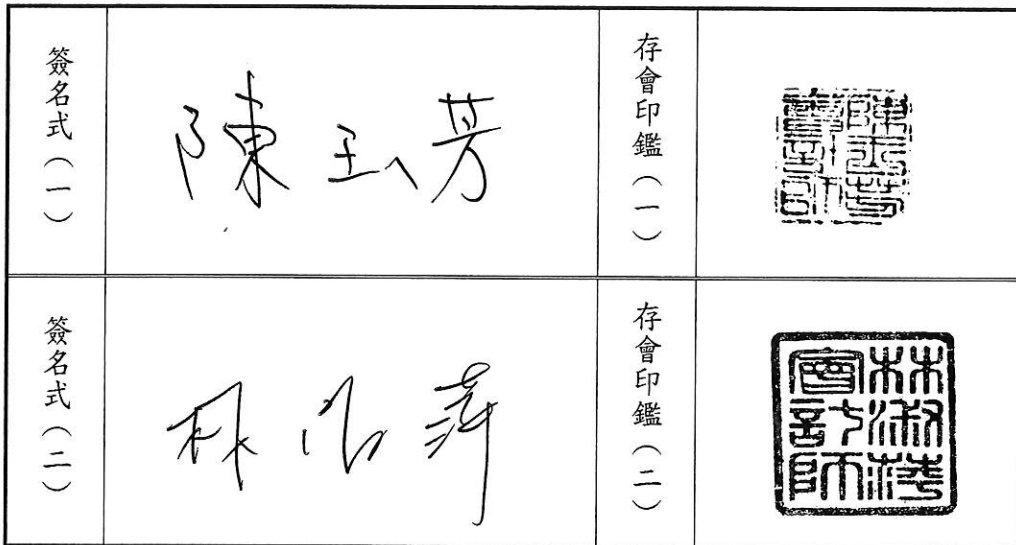 簽名式(一)
陳玉芳
存會印鑑(一)
陳玉芳
會計師
簽名式(二)
林淑萍
存會印鑑(二)
林淑萍
會計師